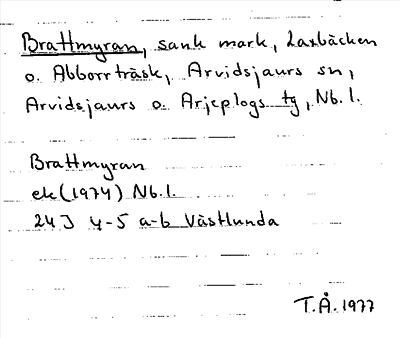 Brattmyran, sank mark, Laxbäcken
o. Abborrträsk, Arvidsjaurs sn,
Arvidsjaurs o. Arjeplogs tg, Nb. l.
Brattmyran
ek (1974) Nb. l.
24J 4-5 a-b Västlunda
T.Å. 1977